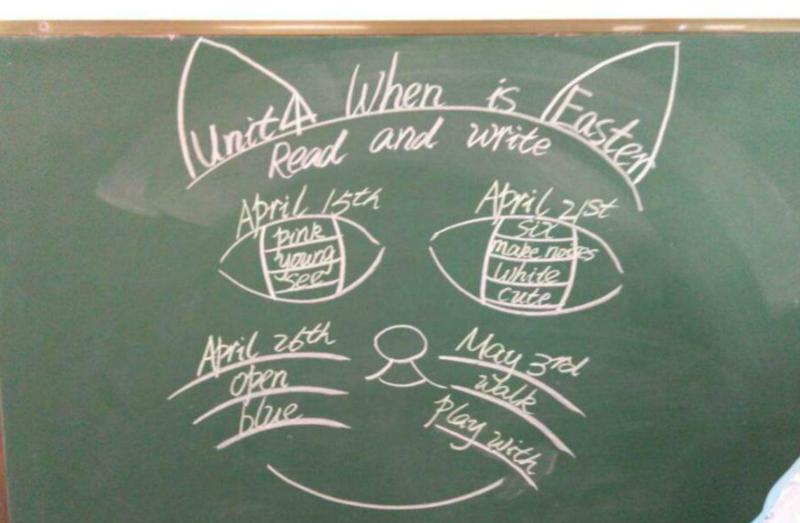 Unit 4 When is Easter
Read and write
April 15th
pink
young
see
April 21st
six
make noises
white
cute
April 26th
open
blue
May 3rd
walk
play with